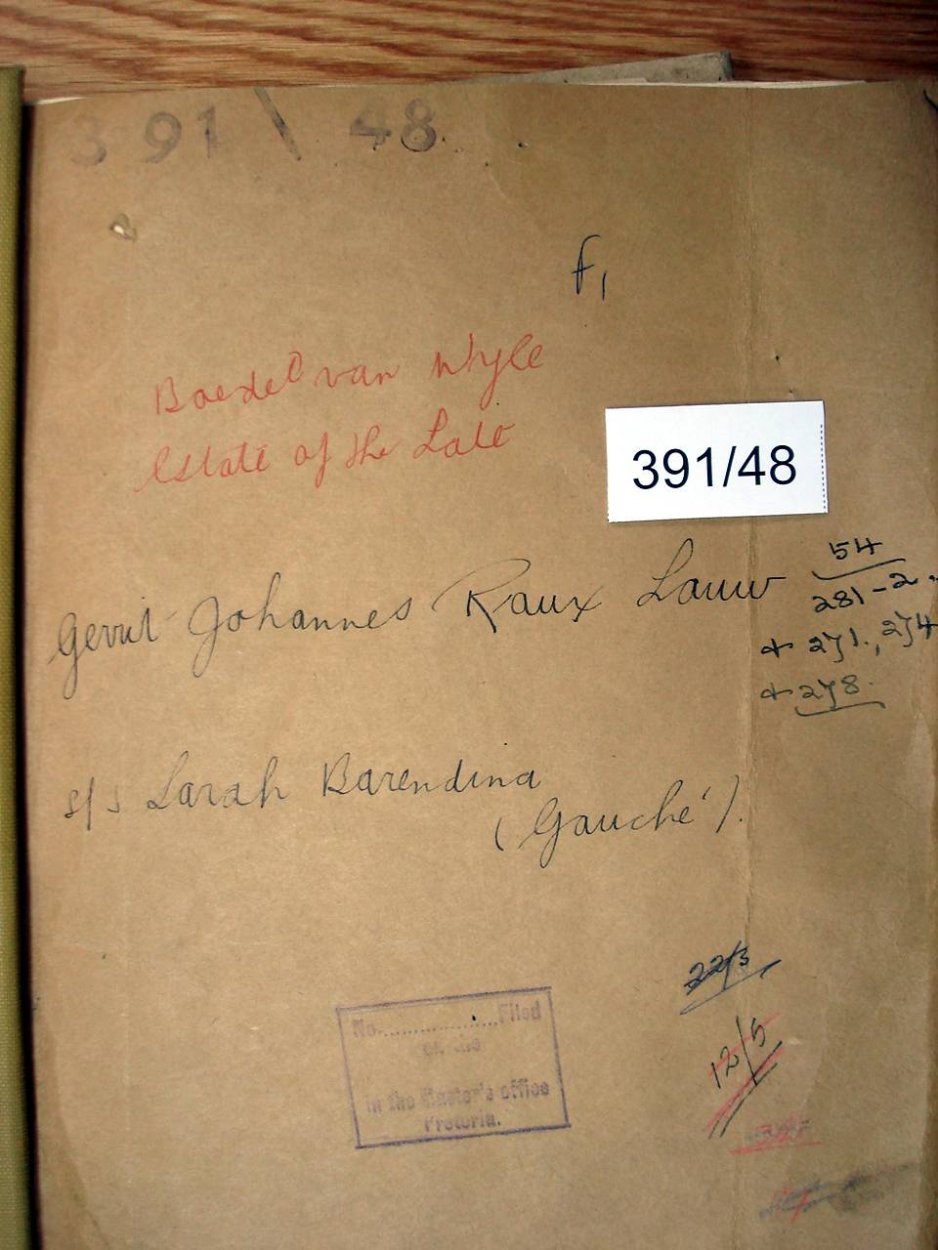 391 \ 48
f1
Boedel van Wyle
Estate of the Late
391/48
Gerrit Johannes Raux Lauw
54
281-2.
+ 271., 274
+ 278.
s/s Sarah Barendina
(Gauché).
22/3
12/5
No...................Filed
in the Master's office
Pretoria.